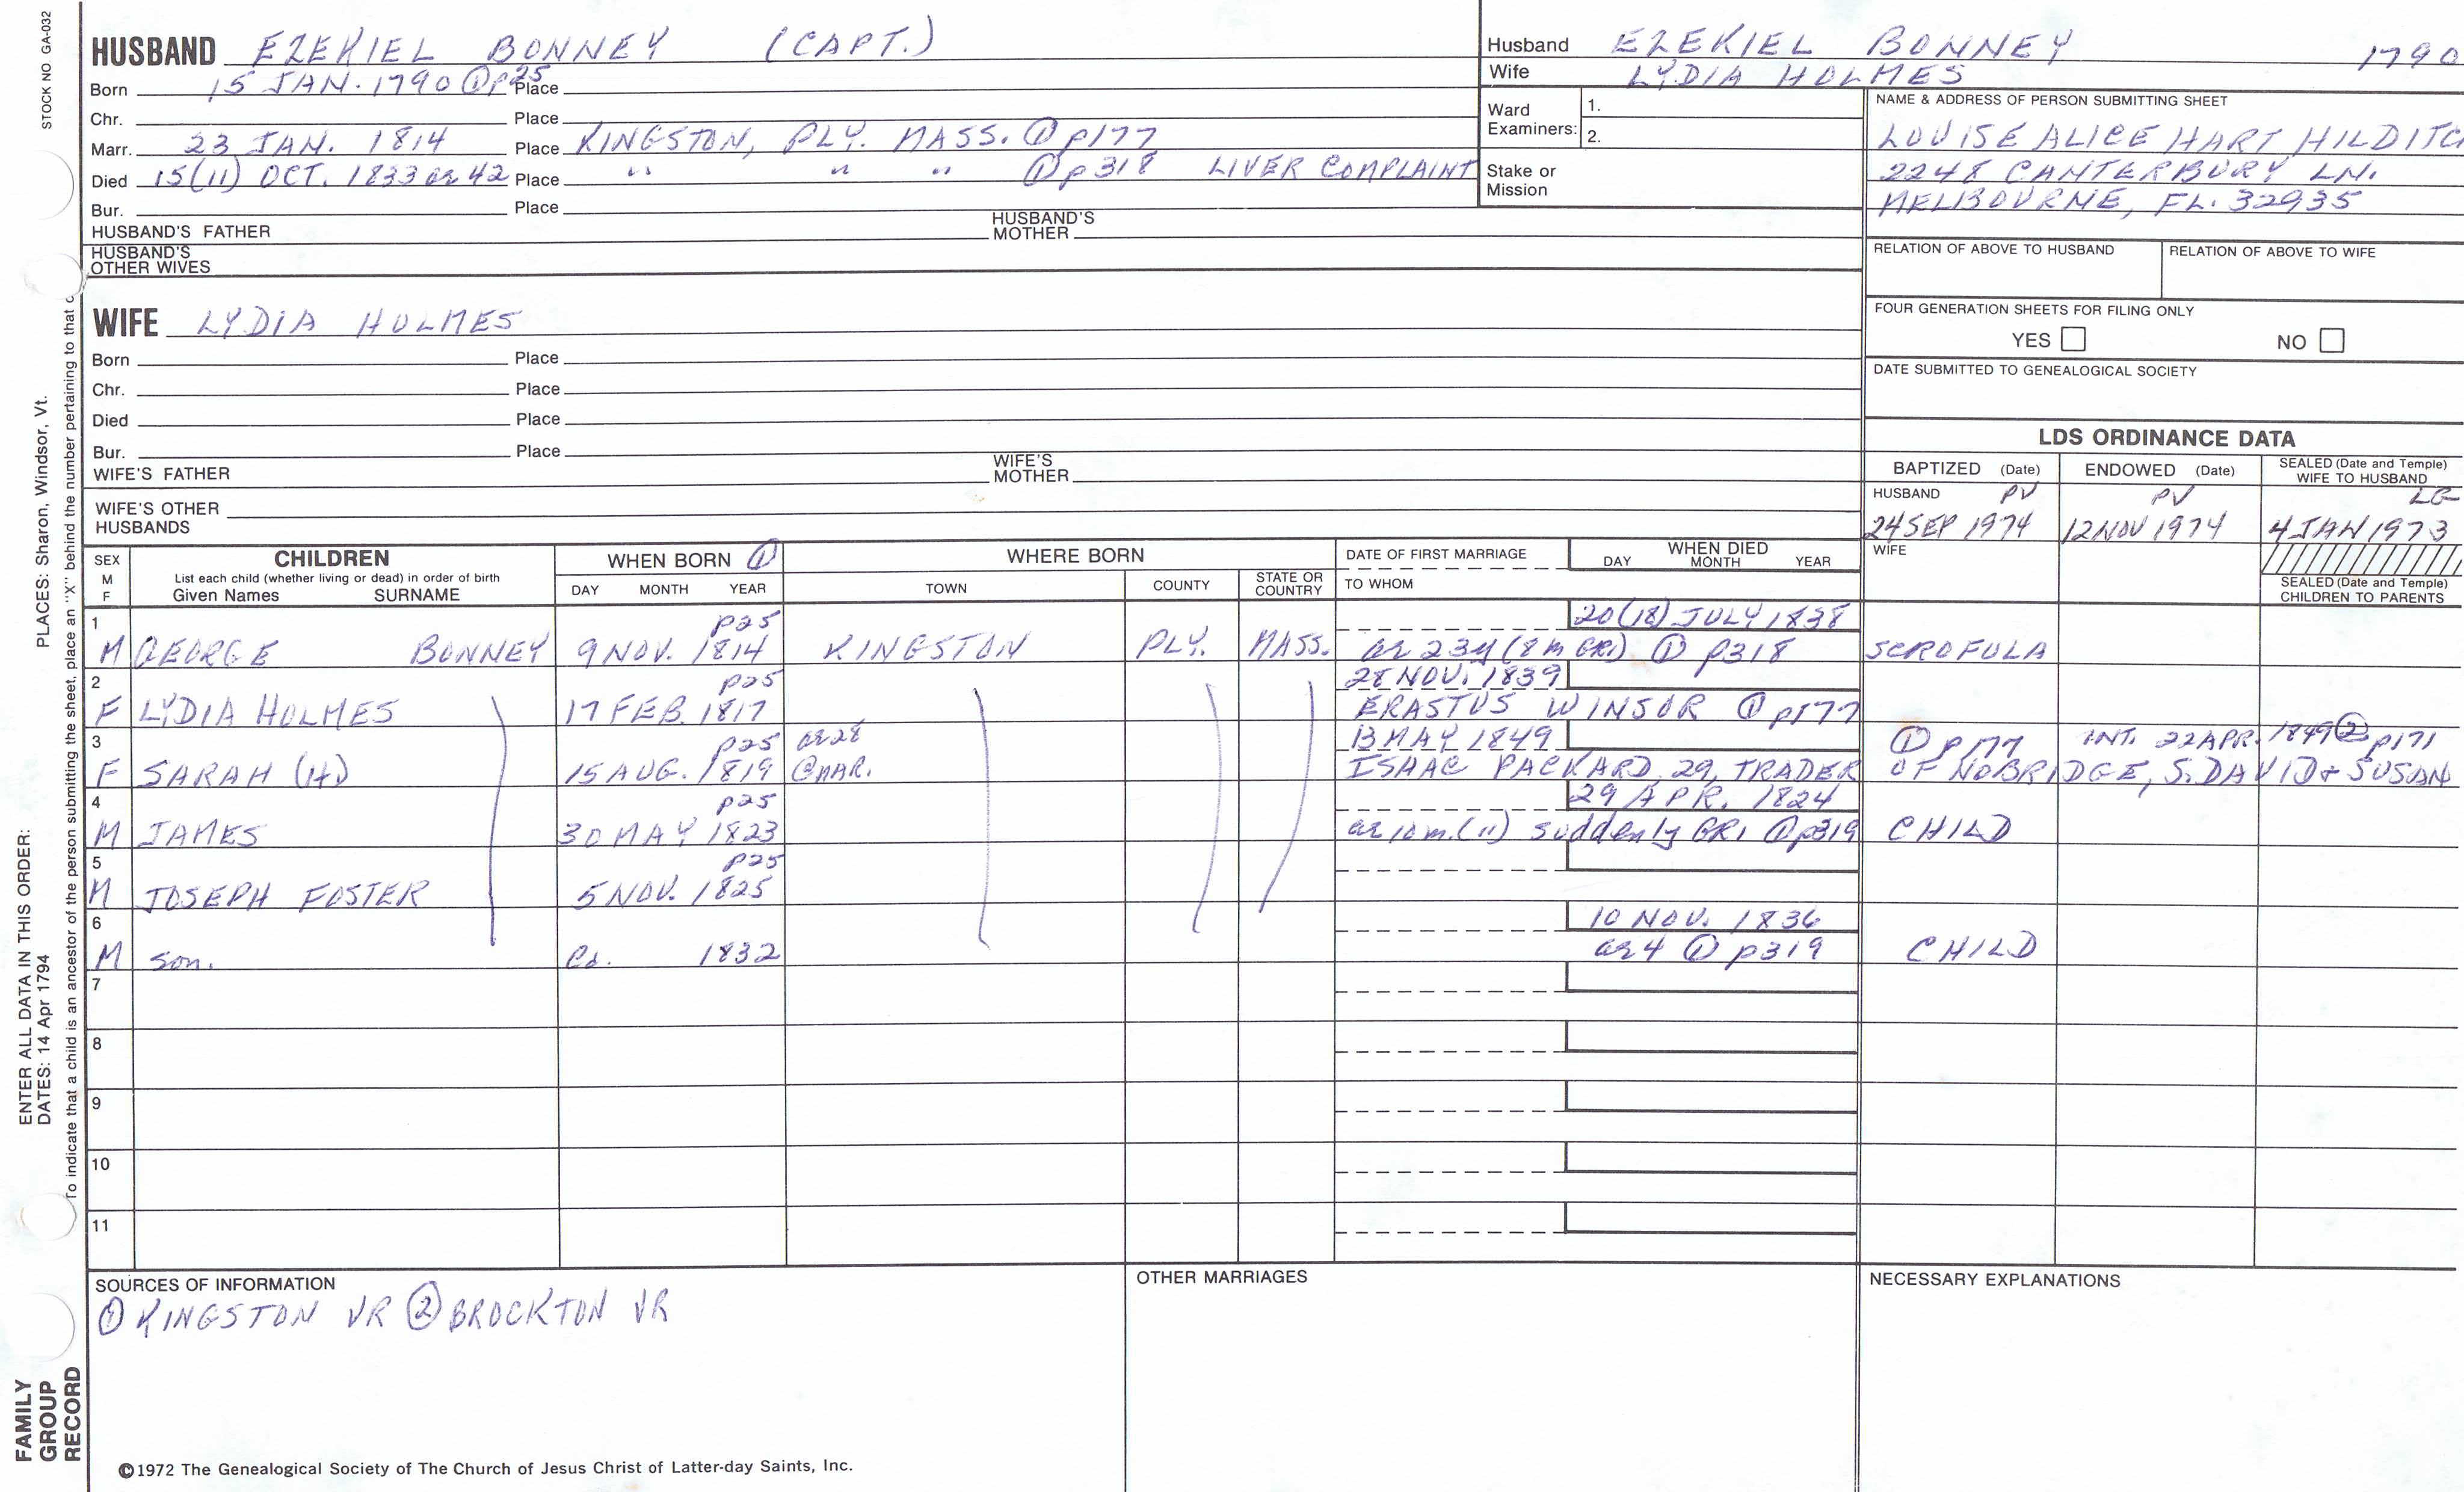 STOCK NO. GA-032
HUSBAND EZEKIEL BONNEY (CAPT.)
Born 15 JAN. 1790 ① p25 Place
Chr. Place
Marr. 23 JAN. 1814 Place KINGSTON, PLY. MASS. ① p177
Died 15(11) OCT. 1833 ae 42 Place " " " ① p318 LIVER COMPLAINT
Bur. Place
HUSBAND'S FATHER HUSBAND'S MOTHER
HUSBAND'S OTHER WIVES
Husband EZEKIEL BONNEY 1790
Wife LYDIA HOLMES
Ward Examiners: 1.
2.
Stake or Mission
NAME & ADDRESS OF PERSON SUBMITTING SHEET
LOUISE ALICE HART HILDITC
2248 CANTERBURY LN.
MELBOURNE, FL. 32935
RELATION OF ABOVE TO HUSBAND RELATION OF ABOVE TO WIFE
FOUR GENERATION SHEETS FOR FILING ONLY
YES NO
DATE SUBMITTED TO GENEALOGICAL SOCIETY
WIFE LYDIA HOLMES
Born Place
Chr. Place
Died Place
Bur. Place
WIFE'S FATHER WIFE'S MOTHER
WIFE'S OTHER HUSBANDS
LDS ORDINANCE DATA
BAPTIZED (Date) ENDOWED (Date) SEALED (Date and Temple) WIFE TO HUSBAND
HUSBAND PV PV
24 SEP 1974 12 NOV 1974 4 JAN 1973
WIFE
SEALED (Date and Temple) CHILDREN TO PARENTS
SEX M F CHILDREN WHEN BORN ① WHERE BORN DATE OF FIRST MARRIAGE WHEN DIED
List each child (whether living or dead) in order of birth
Given Names SURNAME DAY MONTH YEAR TOWN COUNTY STATE OR COUNTRY TO WHOM DAY MONTH YEAR
1 p25 20(18) JULY 1838
M GEORGE BONNEY 9 NOV. 1814 KINGSTON PLY. MASS. ae 23y (8m GR1) ① p318 SCROFULA
2 p25 28 NOV. 1839
F LYDIA HOLMES 17 FEB. 1817 ERASTUS WINSOR ① p177
3 p25 ae 28 13 MAY 1849 ① p177 INT. 22 APR. 1849 ② p171
F SARAH (H) 15 AUG. 1819 @ MAR. ISAAC PACKARD, 29, TRADER OF NO BRIDGE, S. DAVID & SUSAN
4 p25 29 APR. 1824
M JAMES 30 MAY 1823 ae 10m. (11) suddenly GR1 ① p319 CHILD
5 p25
M JOSEPH FOSTER 5 NOV. 1825
6 10 NOV. 1836
M son. Ca. 1832 ae 4 ① p319 CHILD
7
8
9
10
11
SOURCES OF INFORMATION
① KINGSTON VR ② BROCKTON VR
OTHER MARRIAGES
NECESSARY EXPLANATIONS
©1972 The Genealogical Society of The Church of Jesus Christ of Latter-day Saints, Inc.
FAMILY GROUP RECORD
ENTER ALL DATA IN THIS ORDER:
DATES: 14 Apr 1794
PLACES: Sharon, Windsor, Vt.
To indicate that a child is an ancestor of the person submitting the sheet, place an "X" behind the number pertaining to that c